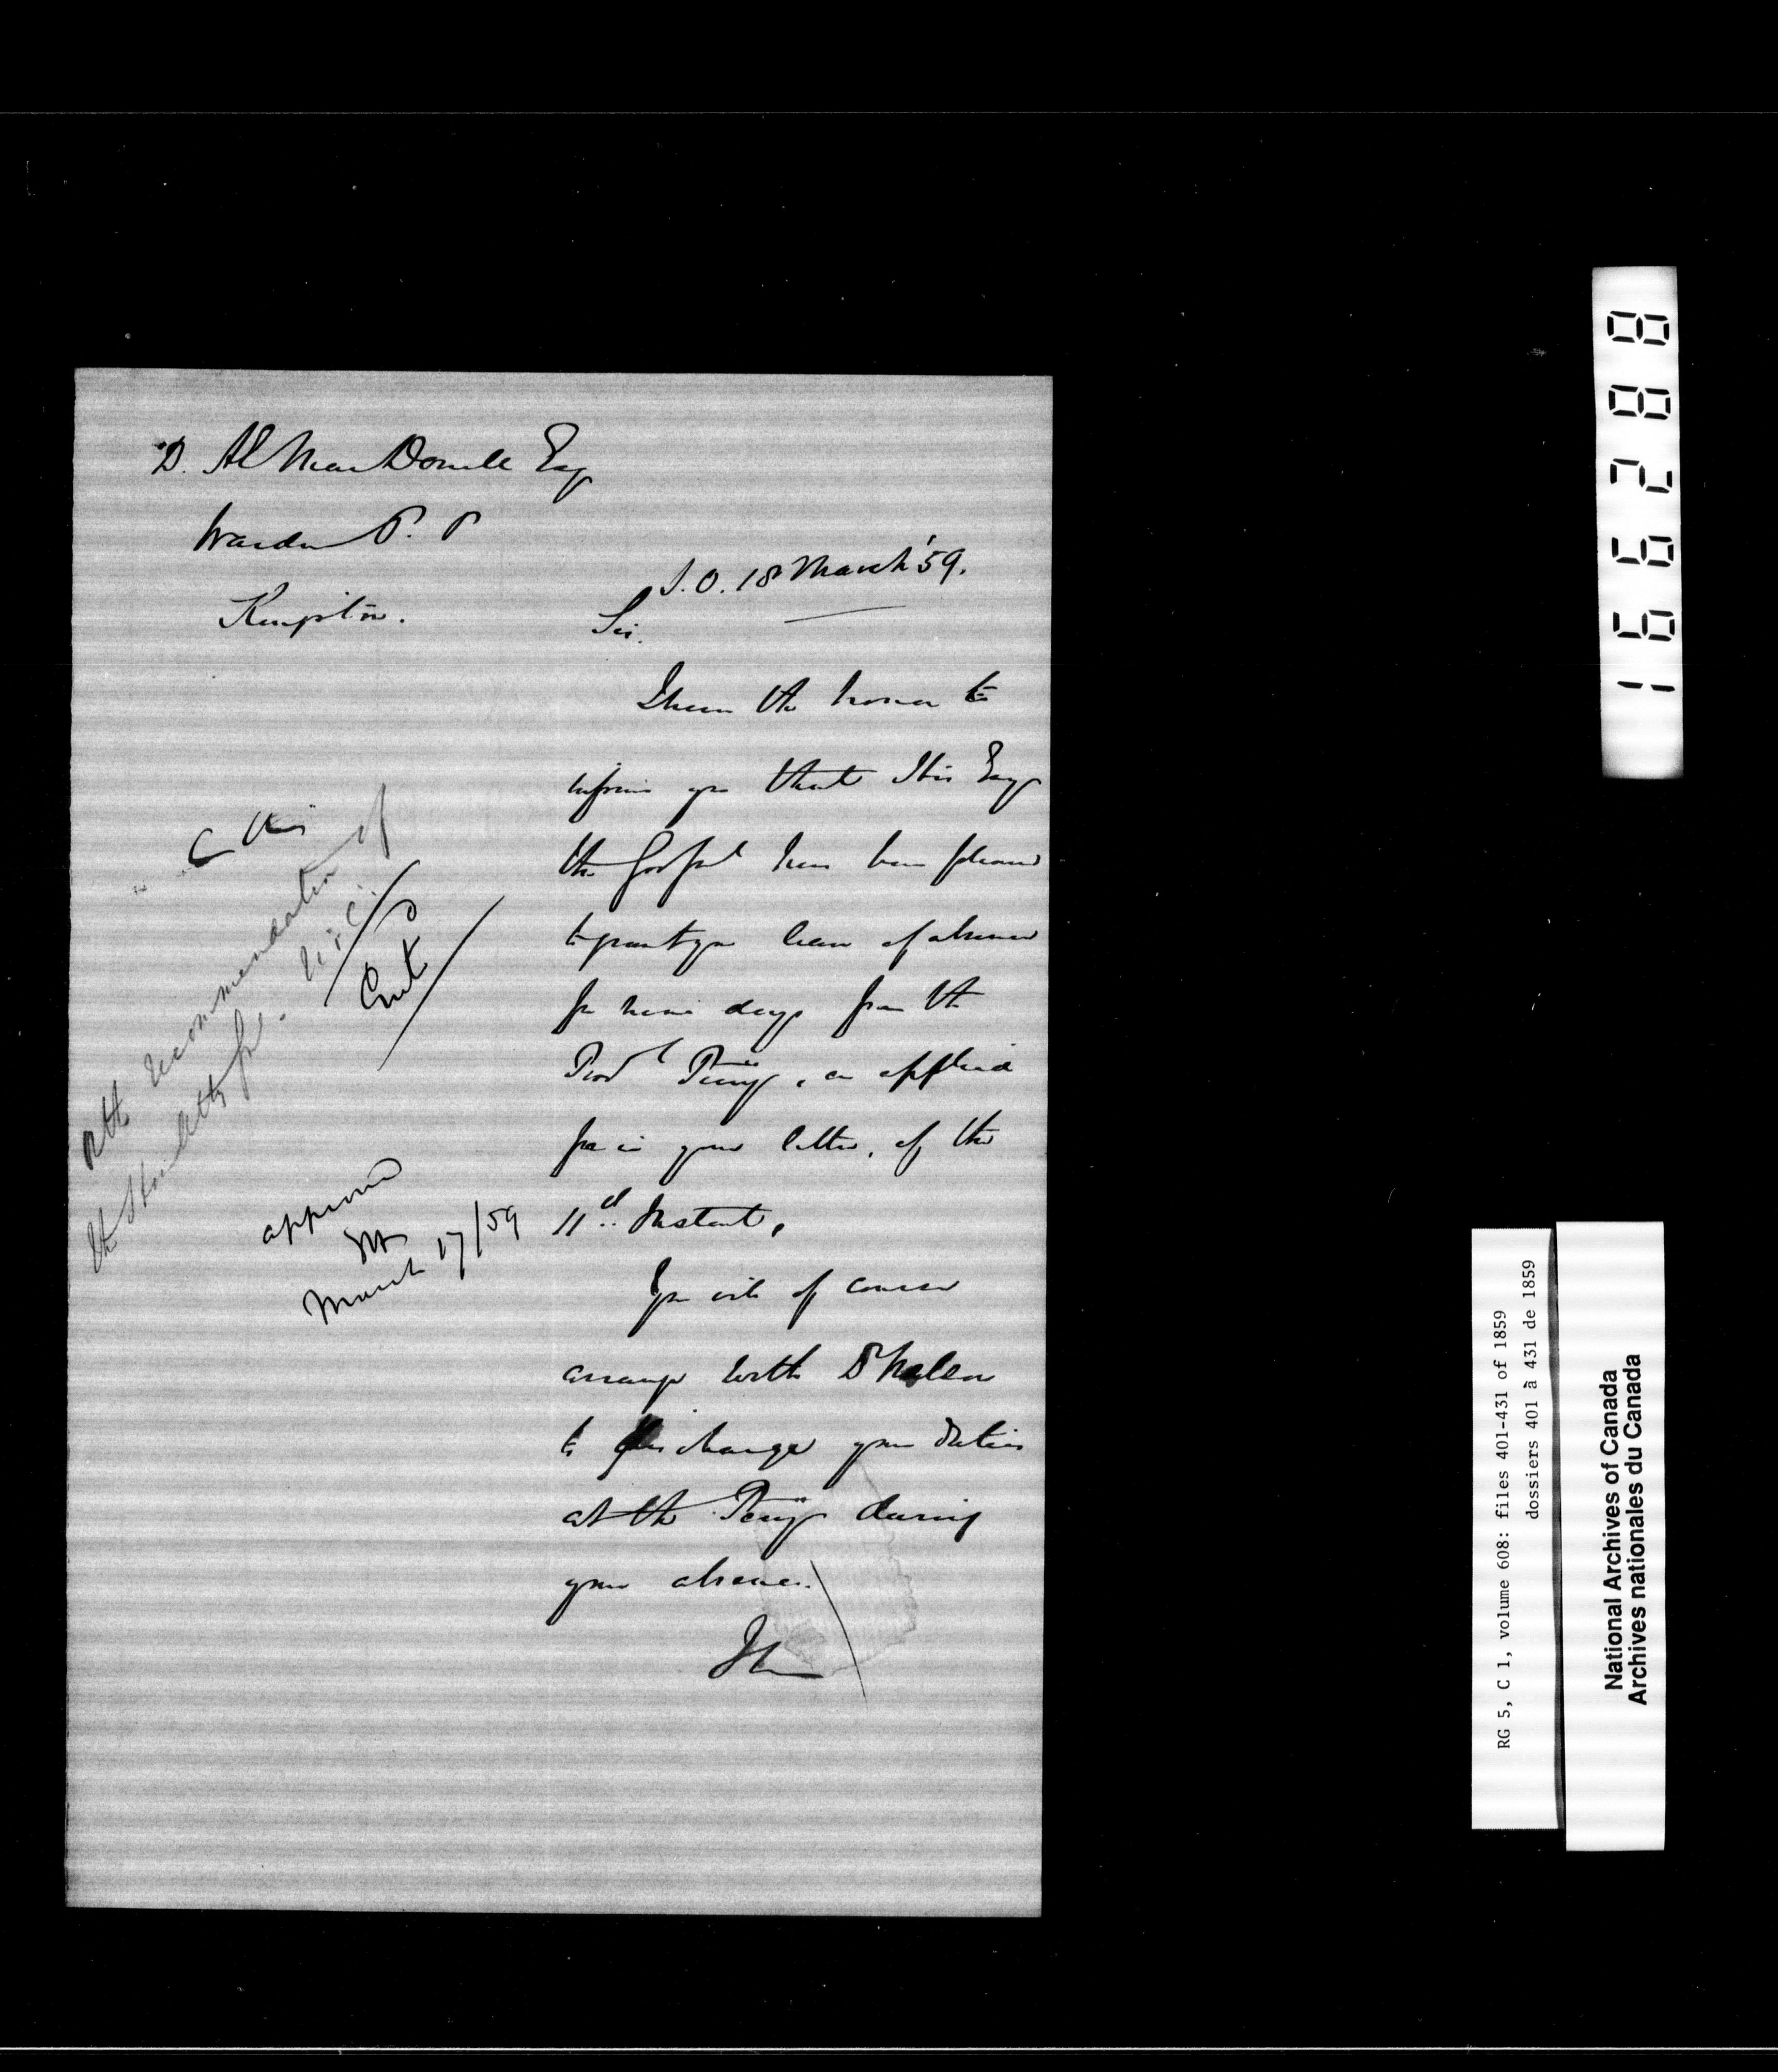 D. Æ MacDonell Esq
Warden P. P
Kingston.
S.O. 18 March '59.
Sir.
I have the honor to
inform you that His Exy
the Gov Genl has been pleased
to grant you leave of absence
for nine days from the
Provl Peniy, as applied
for in your letter, of the
11th Instant.
You will of course
arrange with Dr
to discharge your duties
at the Peniy during
your absence.
I h
On the recommendation of
the Honble Atty Genl. U.C.
Ent
approved
March 17/59
166288
RG 5, C 1, volume 608: files 401-431 of 1859
dossiers 401 à 431 de 1859
National Archives of Canada
Archives nationales du Canada